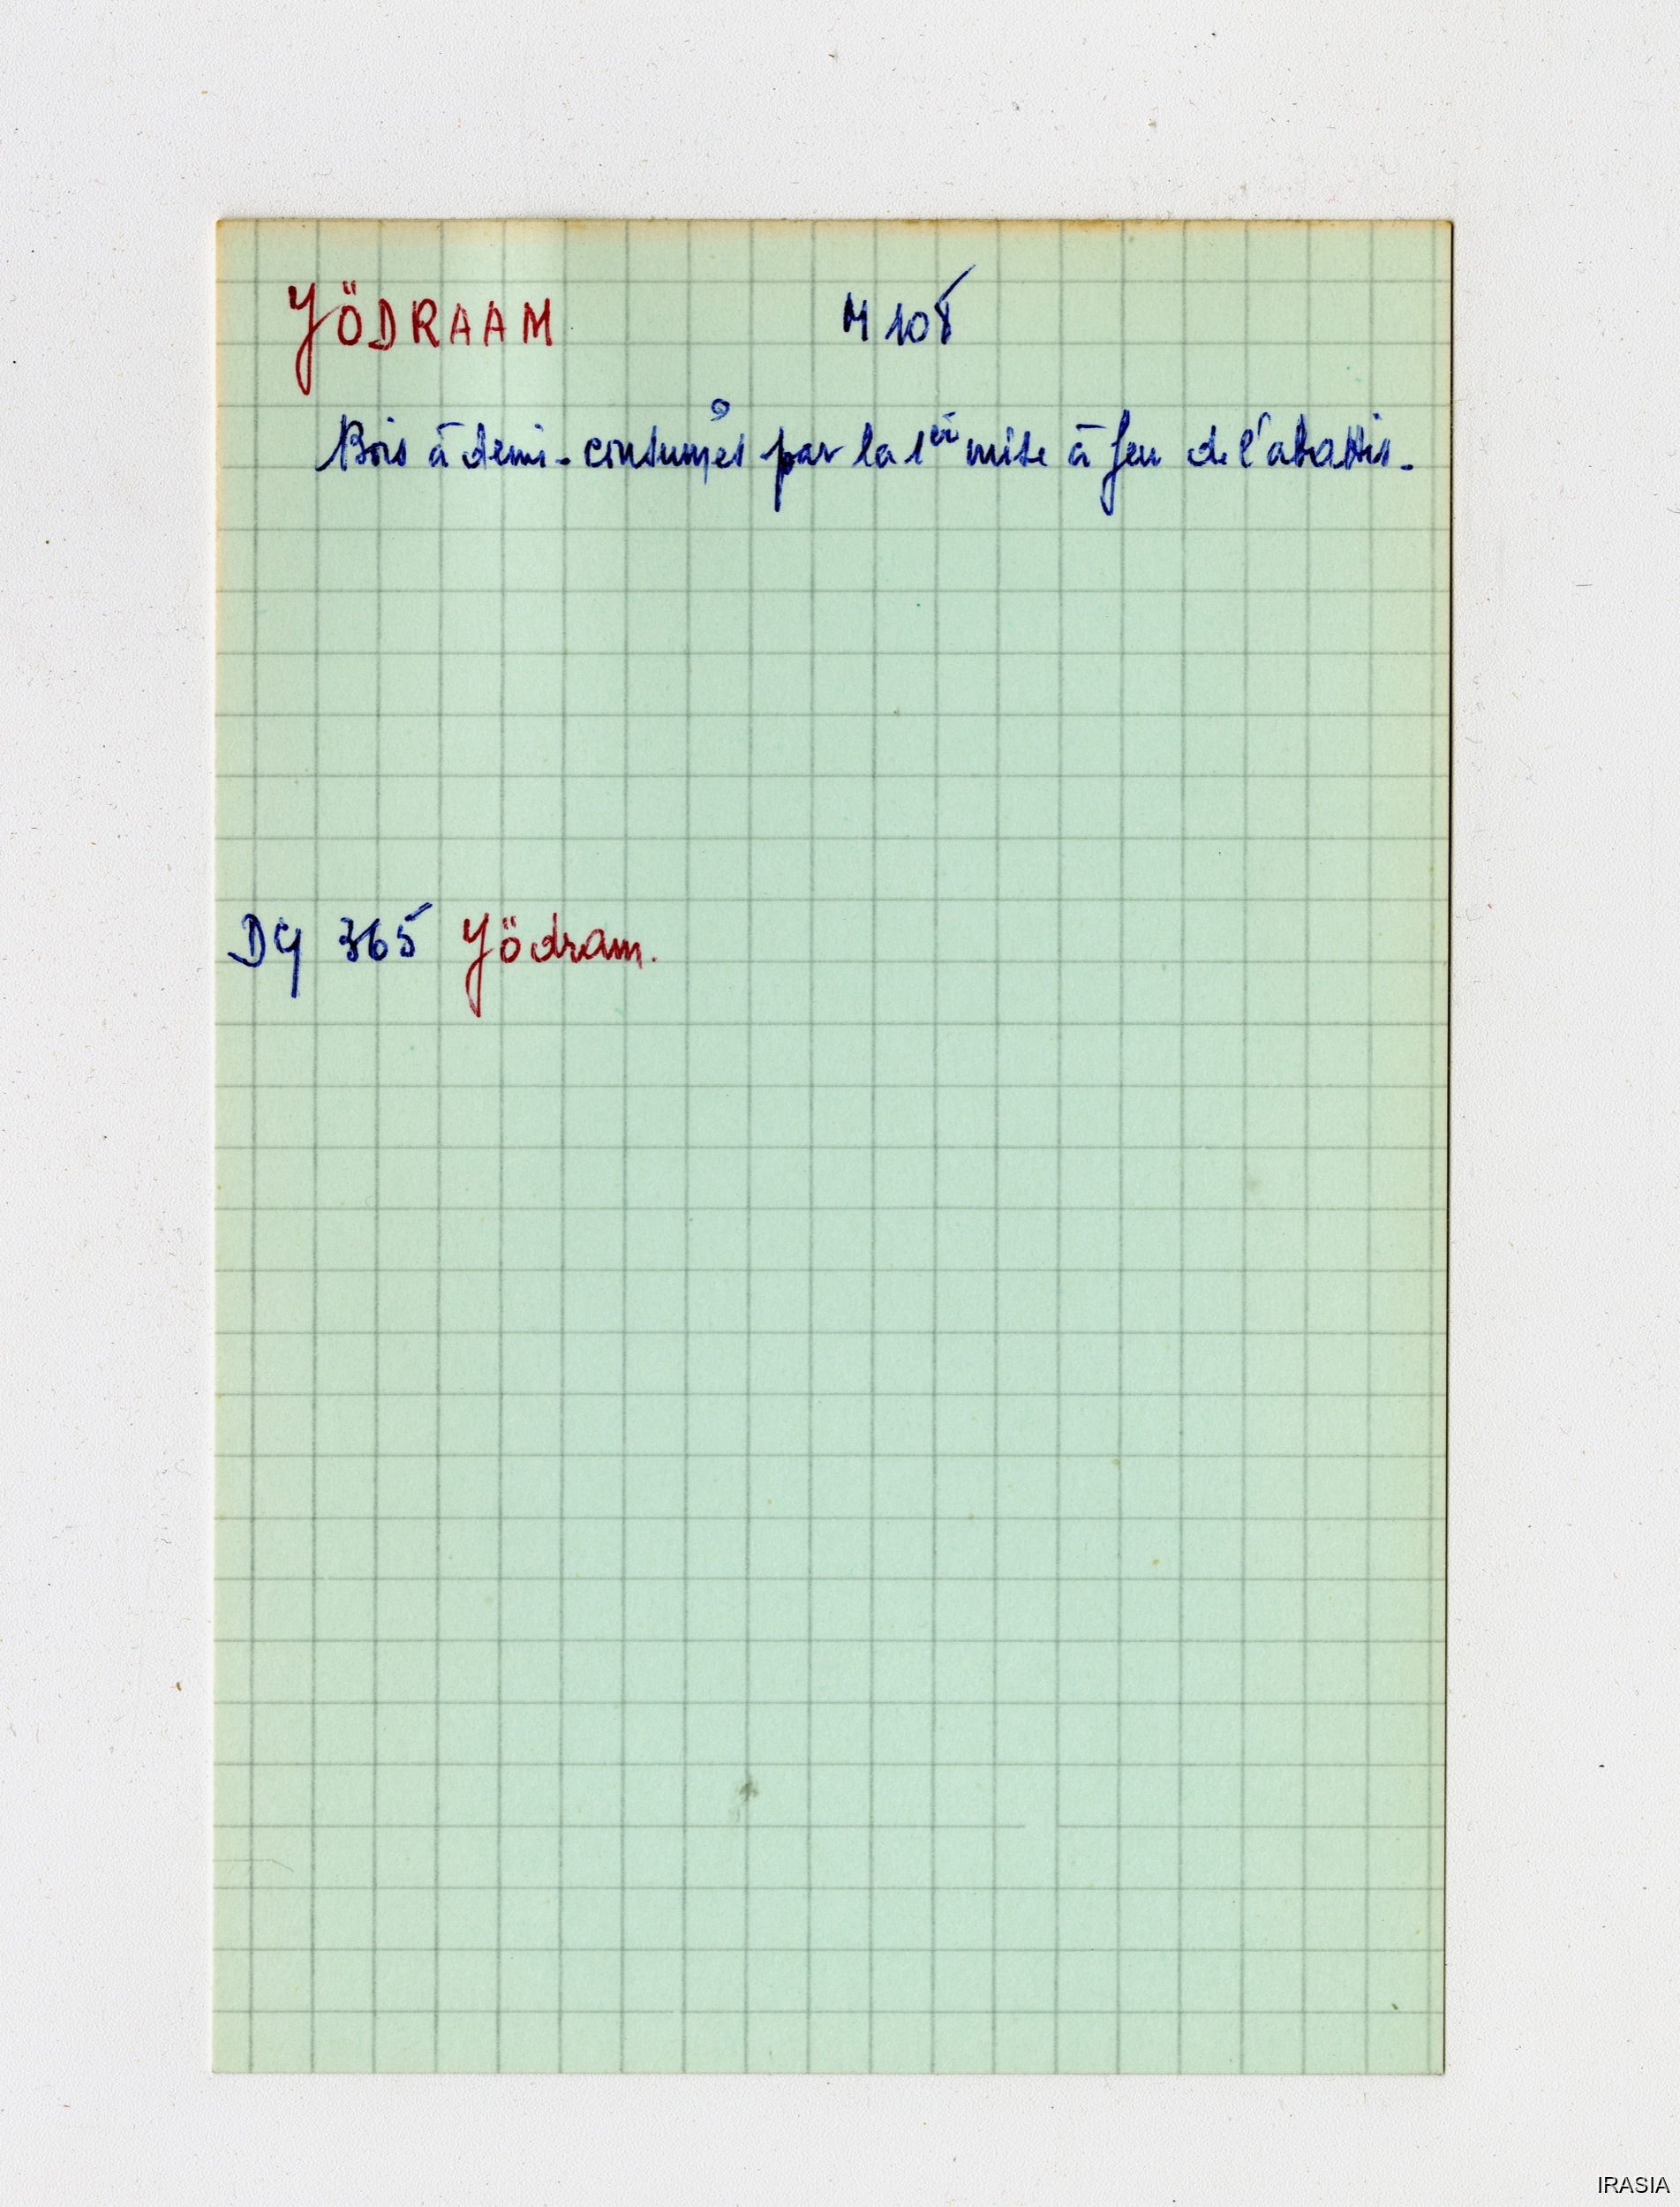 YÖDRAAM M 108
Bois à demi-consumés par la 1ère mise à feu de l'abattis.
DY 365 Yödram.
IRASIA